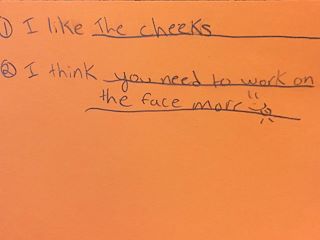 ① I like The cheeks
② I think you need to work on
the face more